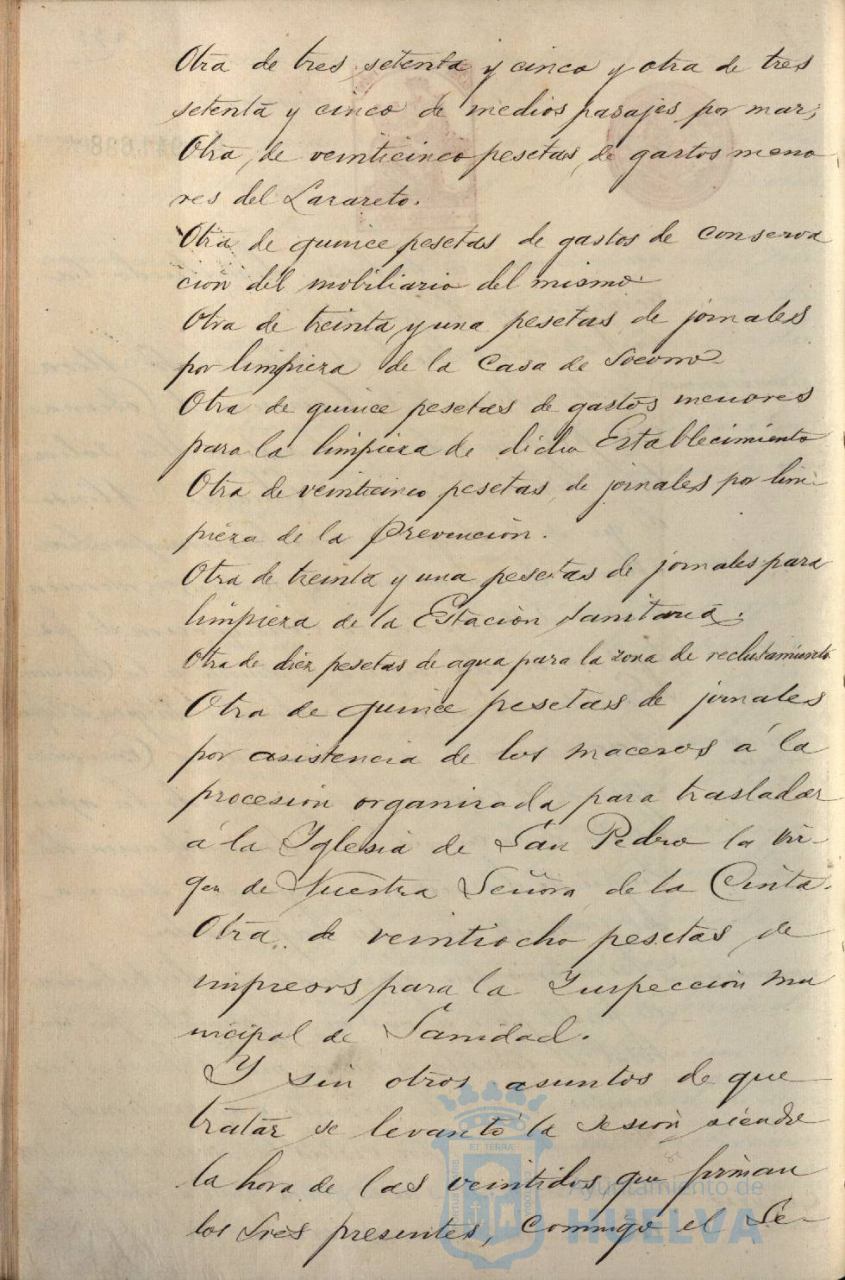 Otra de tres setenta y cinco y otra de tres
setenta y cinco de medios pasajes por mar;
Otra, de veinticinco pesetas, de gastos meno
res del Lazareto.
Otra de quince pesetas de gastos de conserva
ción del mobiliario del mismo.
Otra de treinta y una pesetas de jornales
por limpieza de la Casa de Socorro.
Otra de quince pesetas de gastos menores
para la limpieza de dicho Establecimiento
Otra de veinticinco pesetas de jornales por lim-
pieza de la Prevención.
Otra de treinta y una pesetas de jornales para
limpieza de la Estación Sanitaria.
Otra de diez pesetas de agua para la zona de reclutamiento
Otra de quince pesetas de jornales
por asistencia de los maceros á la
procesión organizada para trasladar
á la Yglesia de San Pedro la Vir-
gen de Nuestra Señora de la Cinta.
Otra de veintiocho pesetas de
impresos para la Ynspección mu
nicipal de Sanidad.
Y sin otros asuntos de que
tratar se levantó la sesión siendo
la hora de las veintidos que firman
los Sres presentes, conmigo el Se-
Ayuntamiento de
HUELVA